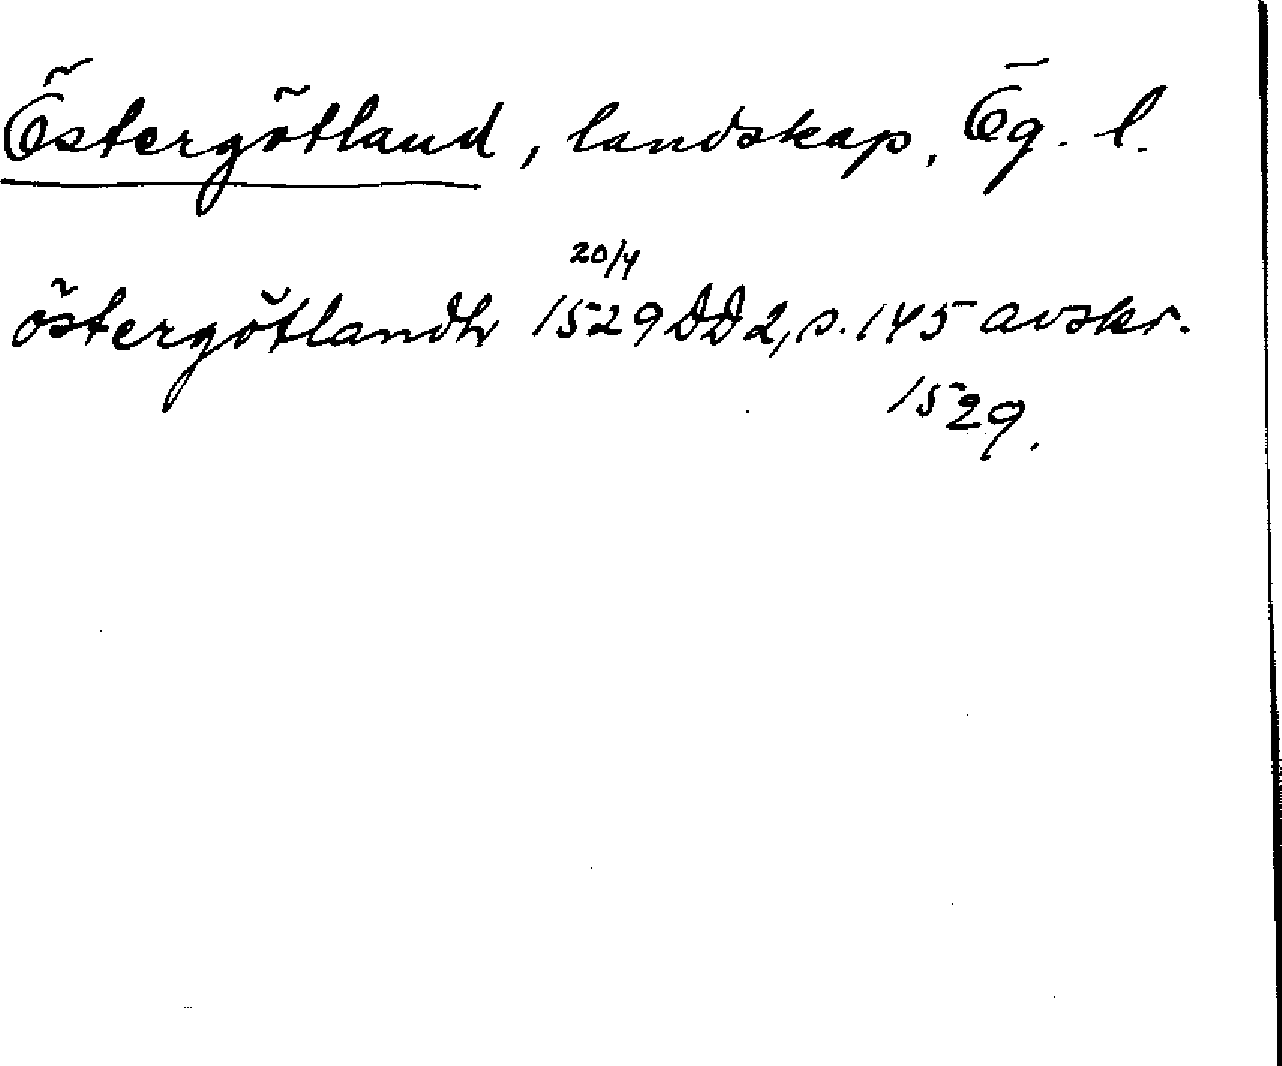 Östergötland, landskap, Ög. l.
östergötlandh 20/4 1529 DD2, s. 145 avskr.
1529.